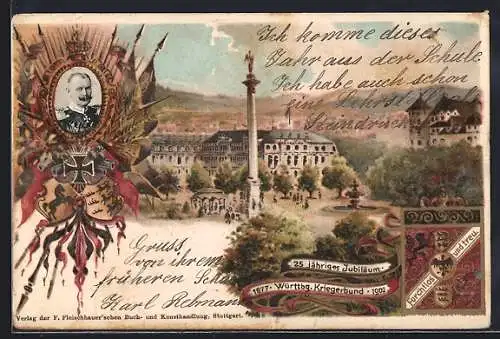 Ich komme dieses
Jahr aus der Schule
Ich habe auch schon
eine
Gruss
von ihrem
früheren
Karl
25 jähriges Jubiläum.
1877. Württbg. Kriegerbund. 1902
Furchtlos und treu.
Verlag der F. Fleischhauer'schen Buch- und Kunsthandlung, Stuttgart.